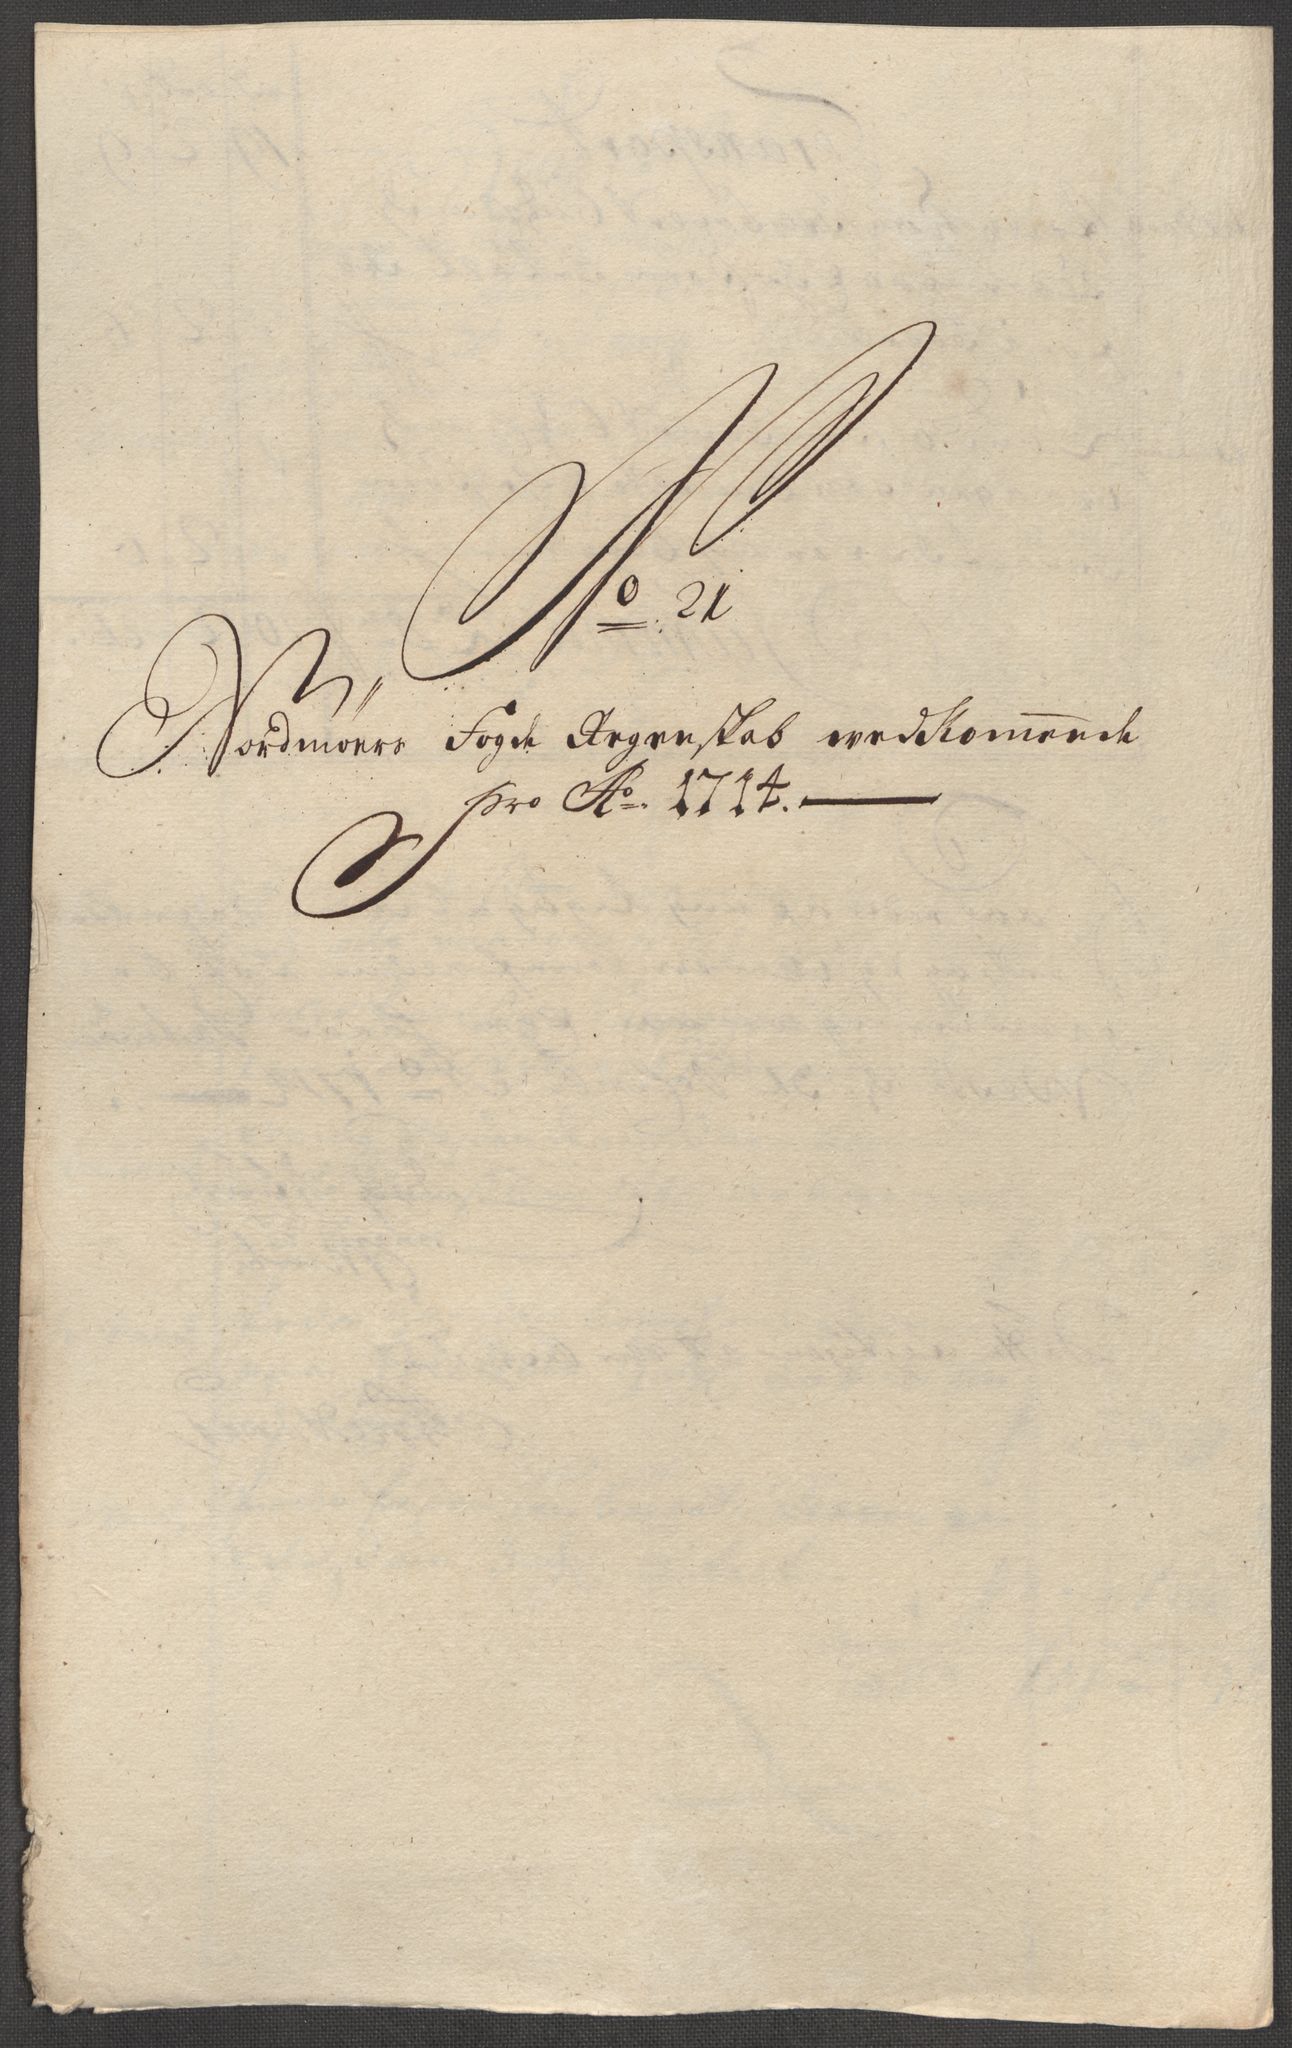 No. 21
Nordmøers Fogde Regenskab wedkom̄ende
pro Ao. 1714.